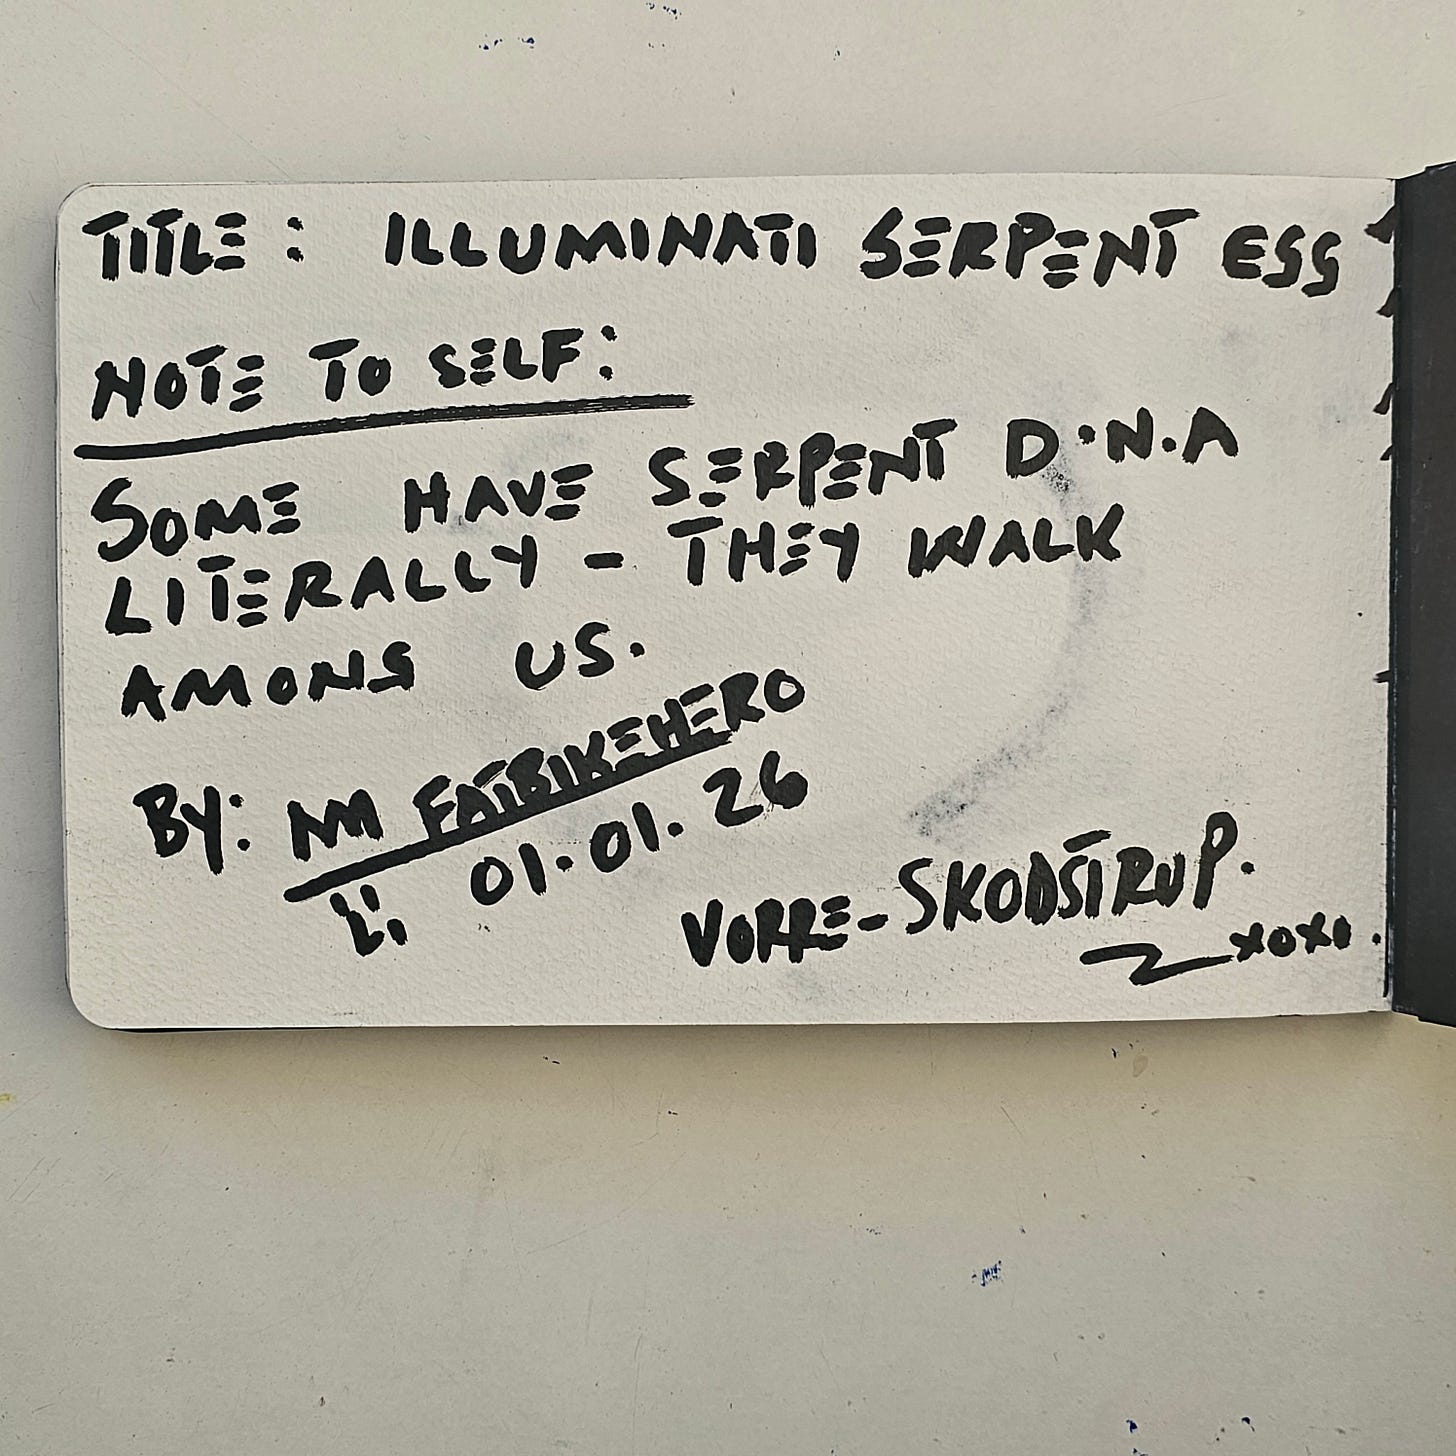 TITLE: ILLUMINATI SERPENT EGG
NOTE TO SELF:
SOME HAVE SERPENT D.N.A
LITERALLY - THEY WALK
AMONG US.
BY: MM FATBIKEHERO
01.01.26
VORRE-SKODSTRUP.
xoxo.